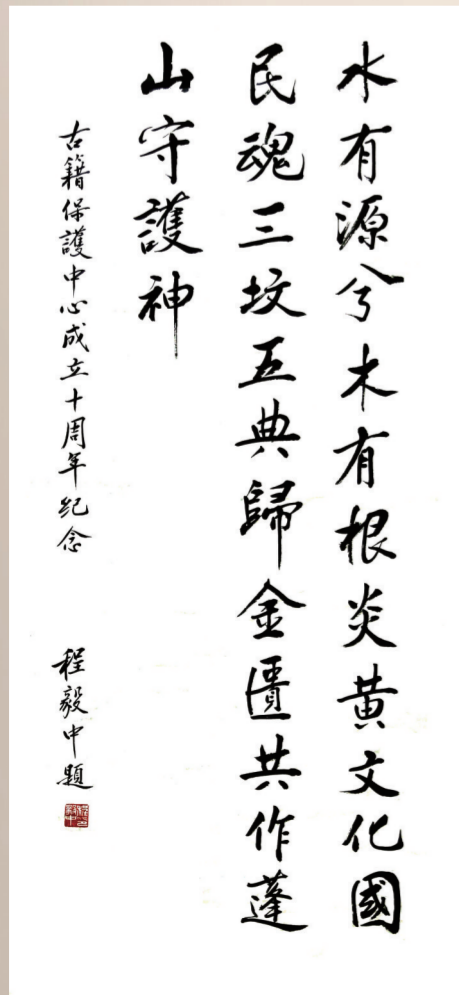 水有源兮木有根炎黄文化國
民魂三坟五典歸金匱共作蓬
山守護神
古籍保護中心成立十周年纪念
程毅中題